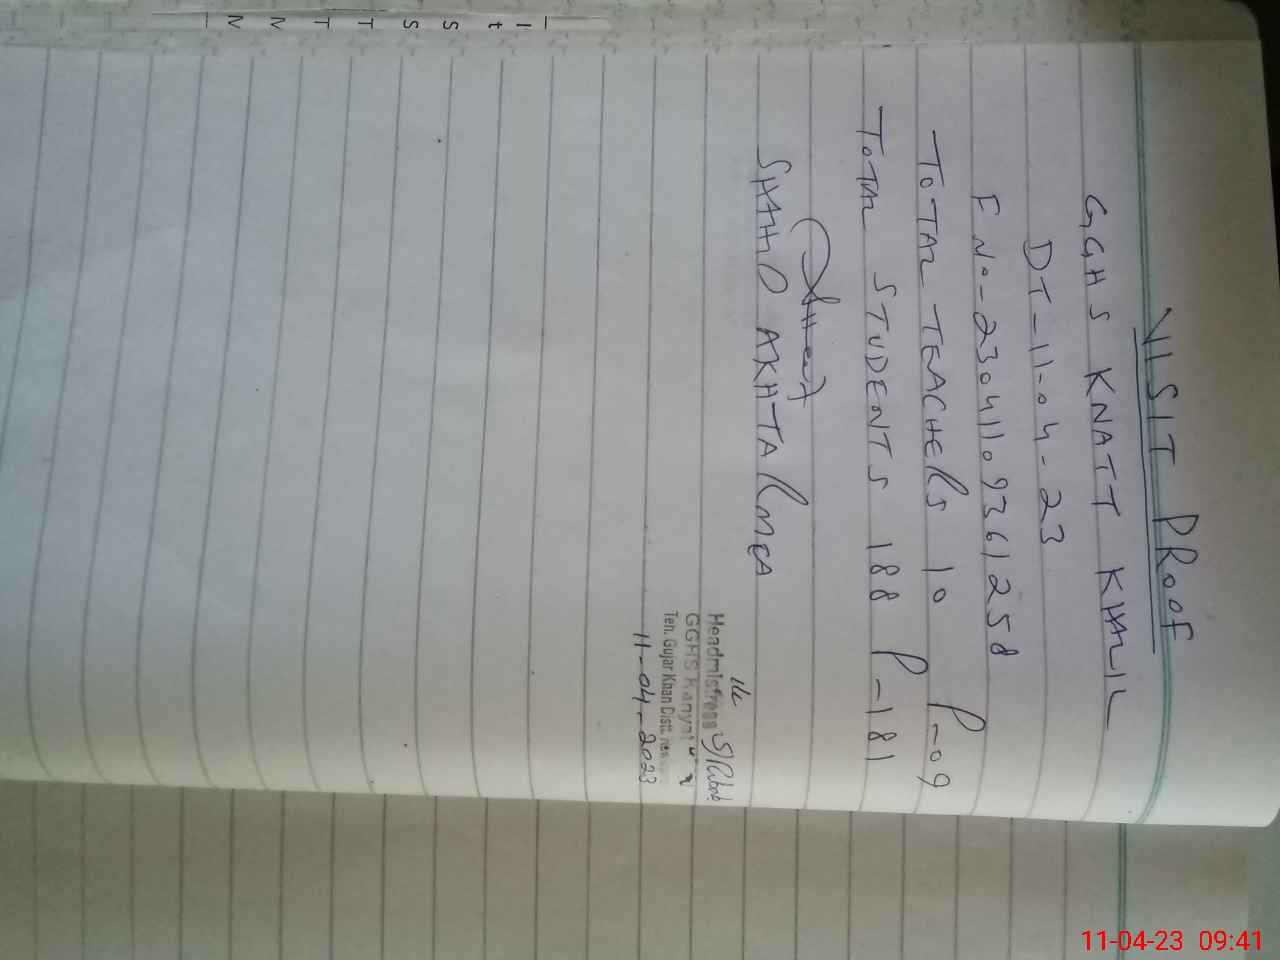 VISIT PROOF
GGHS KNATT KHALIL
DT-11-04-23
F No-23041109361258
TOTAL TEACHERS 10 P-09
TOTAL STUDENTS 188 P-181
AKHTAR MEA
Headmistress
GGHS Kanyat
Teh. Gujar Khan Distt.
11-04-2023
11-04-23 09:41